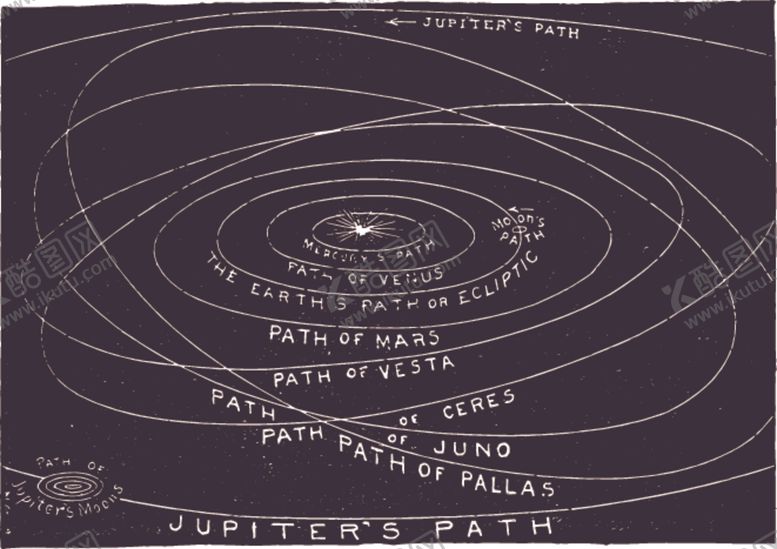 JUPITER'S PATH
MOON'S
PATH
MERCURY'S PATH
PATH OF VENUS
THE EARTH'S PATH OR ECLIPTIC
PATH OF MARS
PATH OF VESTA
PATH OF CERES
PATH OF JUNO
PATH OF PALLAS
PATH OF
Jupiter's Moons
JUPITER'S PATH
酷图网
www.ikutu.com
酷图网
www.ikutu.com